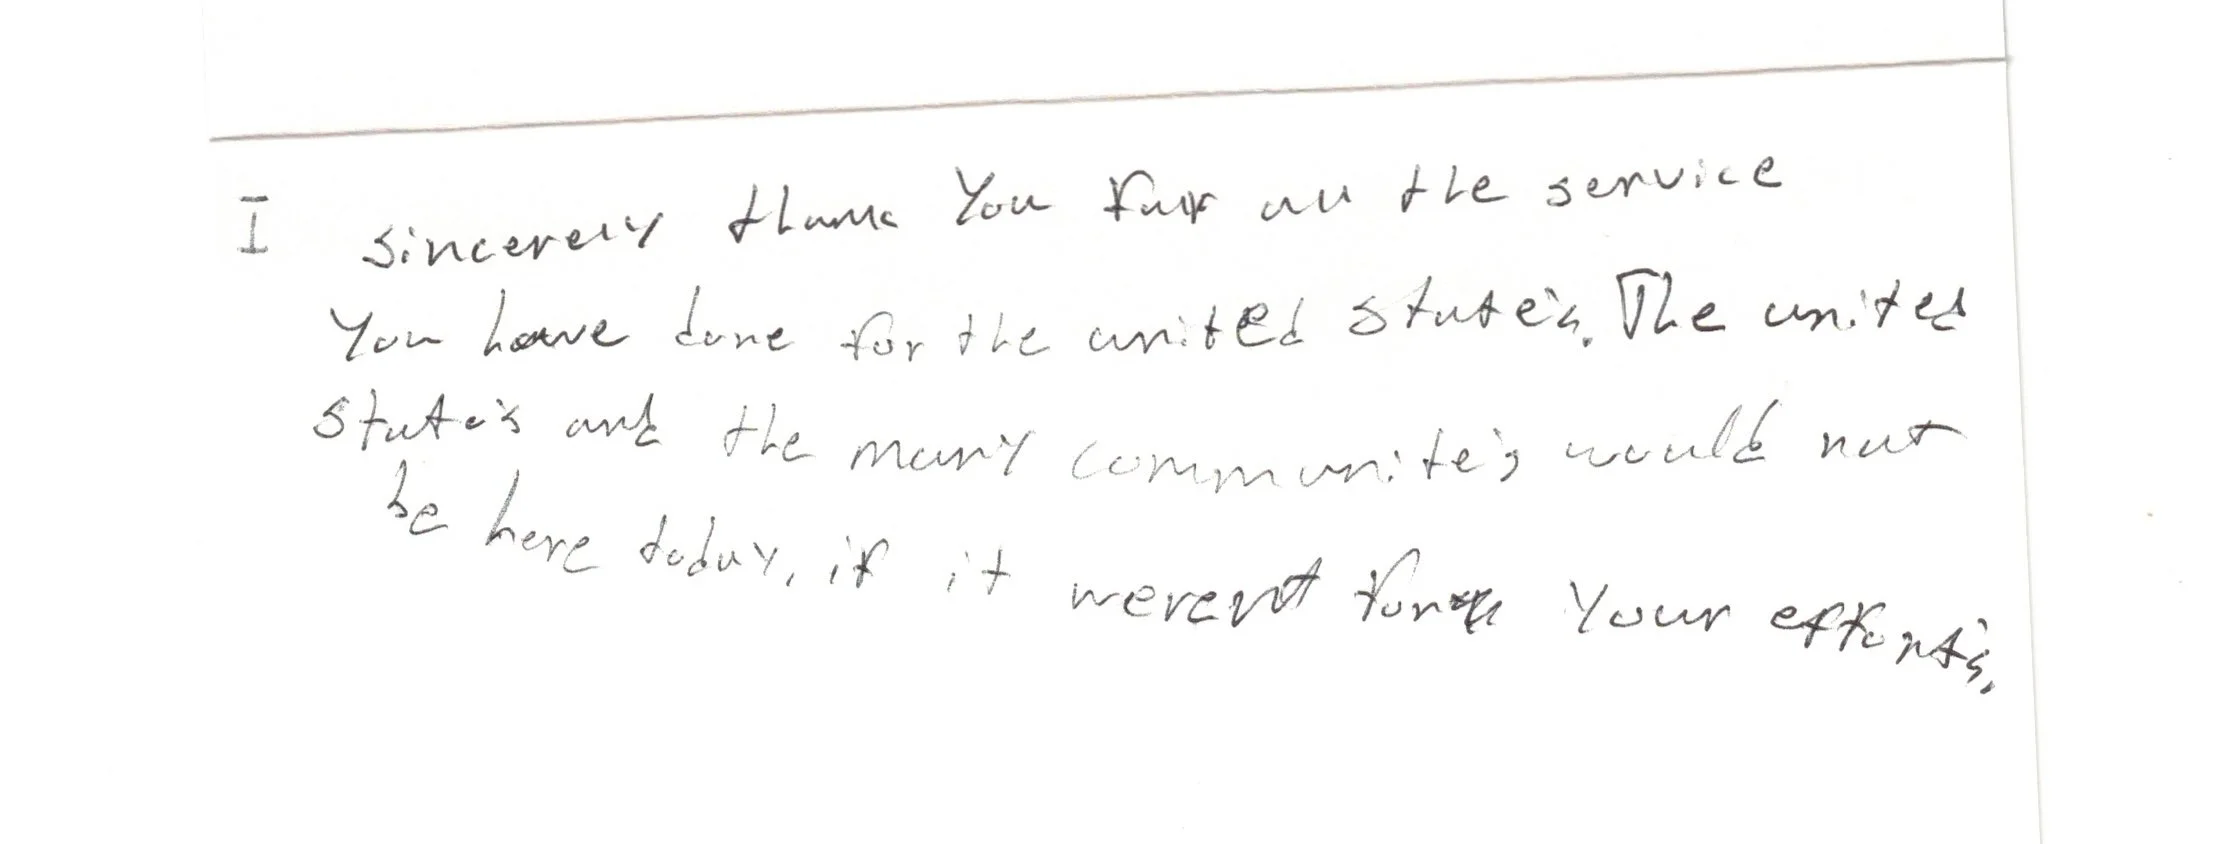 I sincerely thank You for all the service
You have done for the united state's. The united
state's and the many communite's would not
be here today, if it werent for Your effort's.